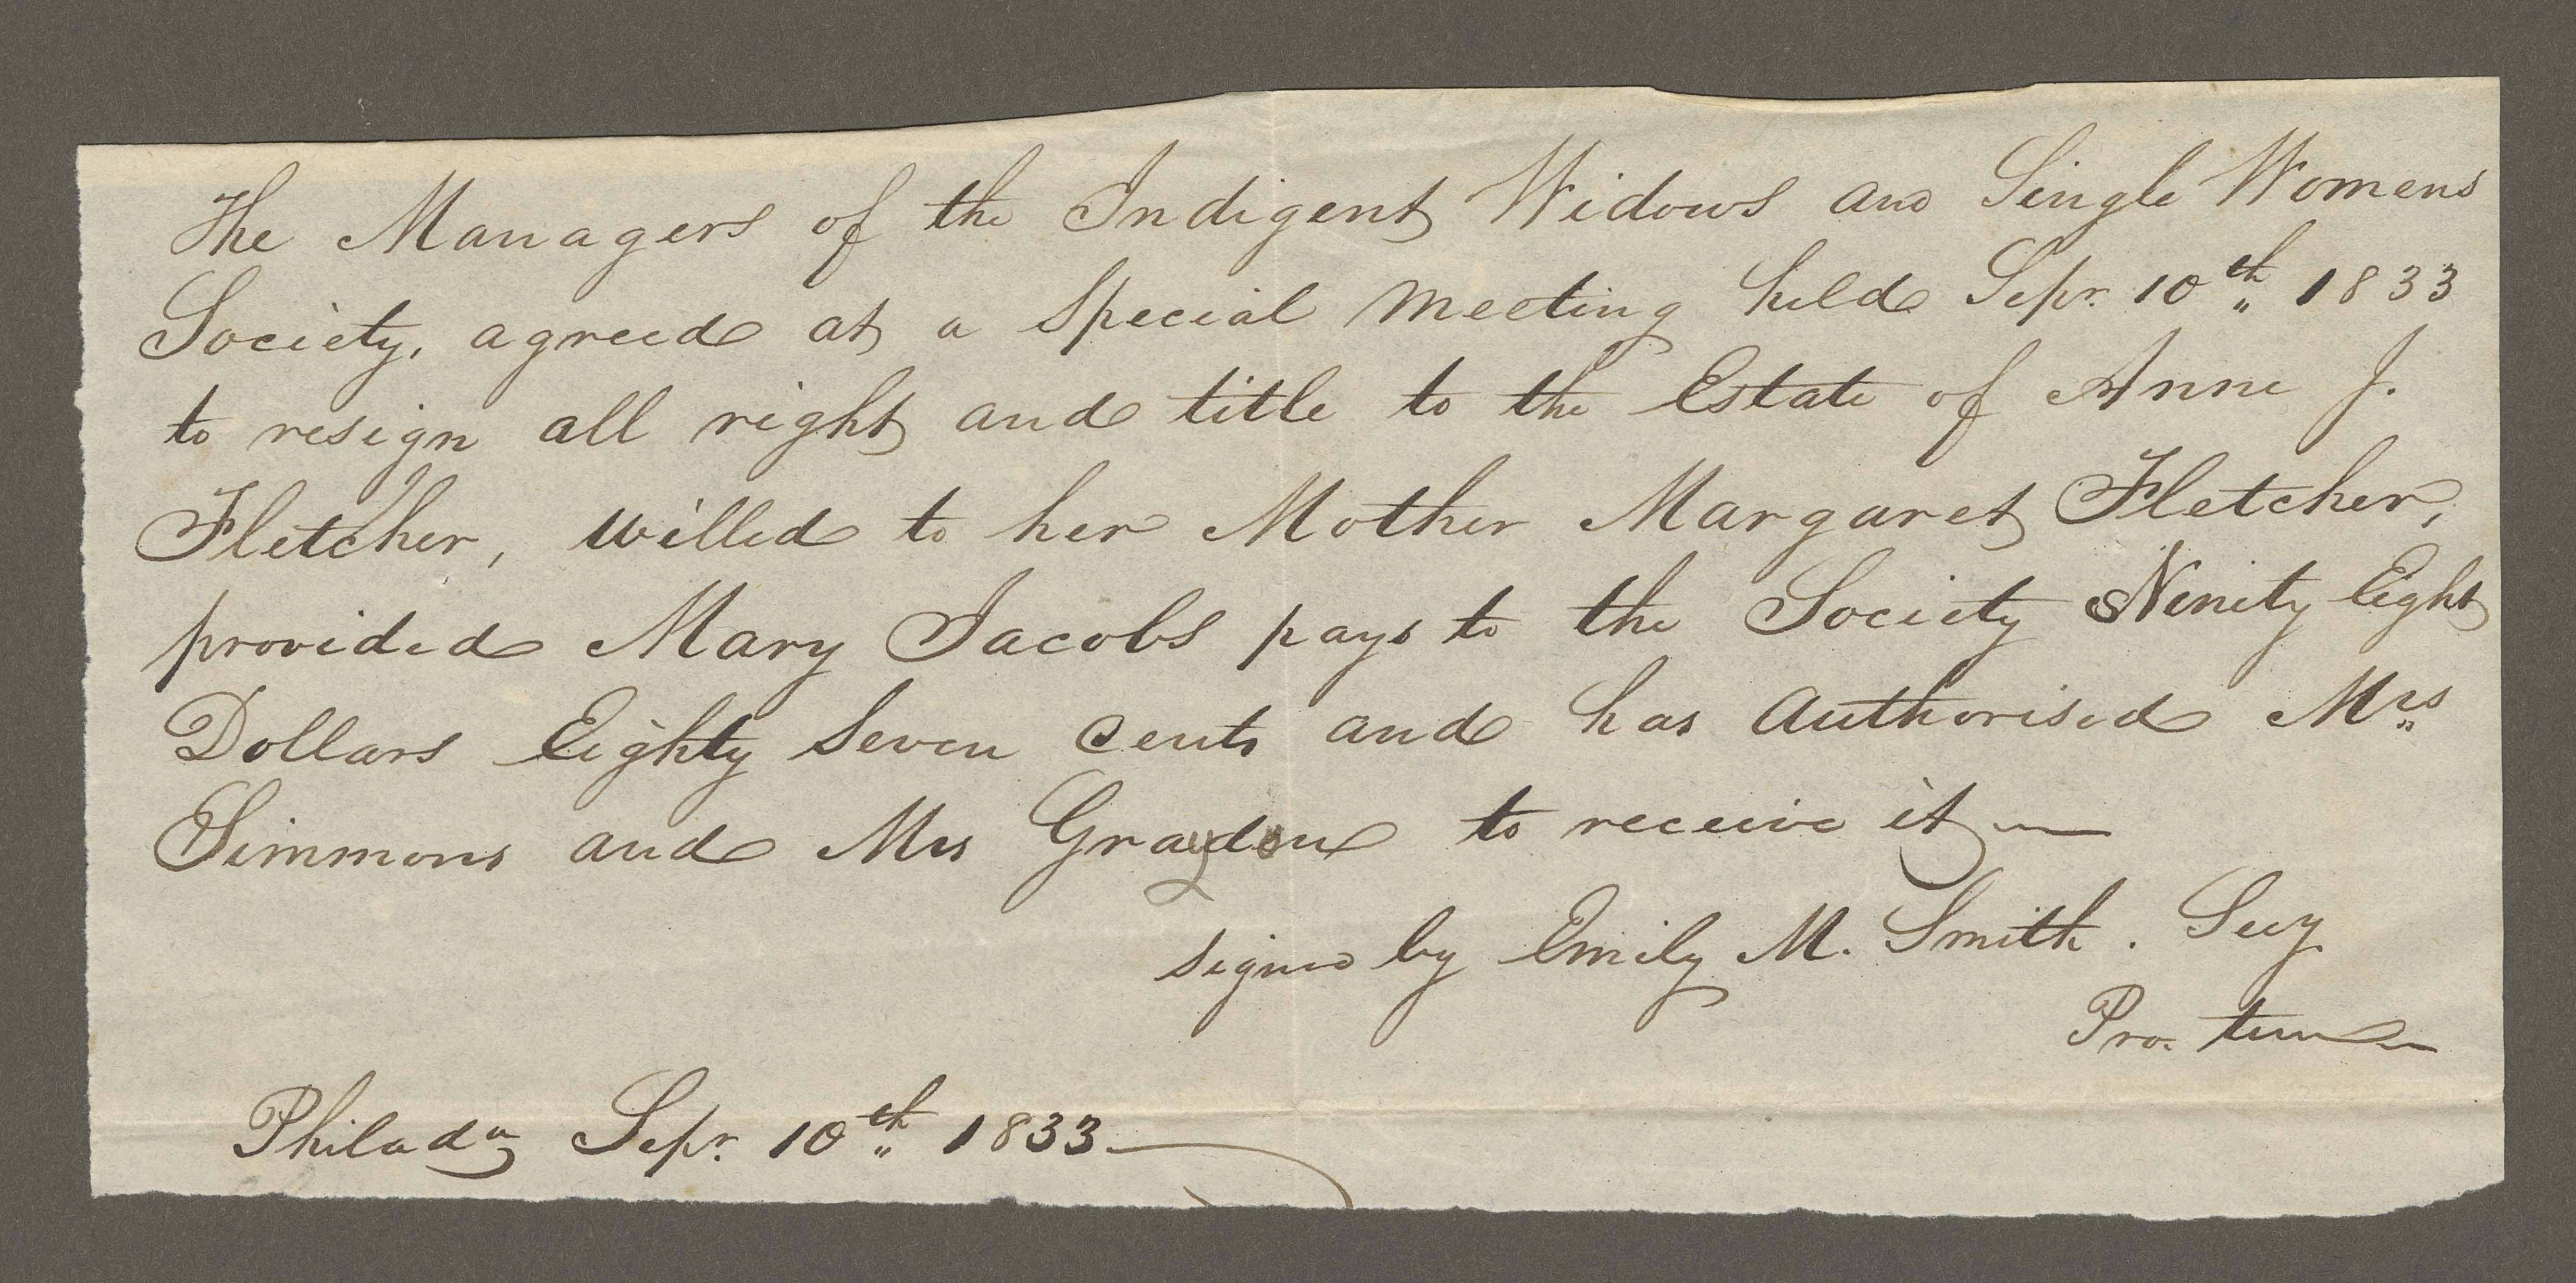 The Managers of the Indigent Widows and Single Womens
Society, agreed at a Special Meeting held Sepr. 10th 1833
to resign all right and title to the Estate of Anne J.
Fletcher, willed to her Mother Margaret Fletcher,
provided Mary Jacobs pays to the Society Ninity Eight
Dollars Eighty Seven Cents and has Authorised Mrs
Simmons and Mrs Graydon to receive it —
signed by Emily M. Smith. Secy.
Pro. tem
Philada Sepr. 10th 1833